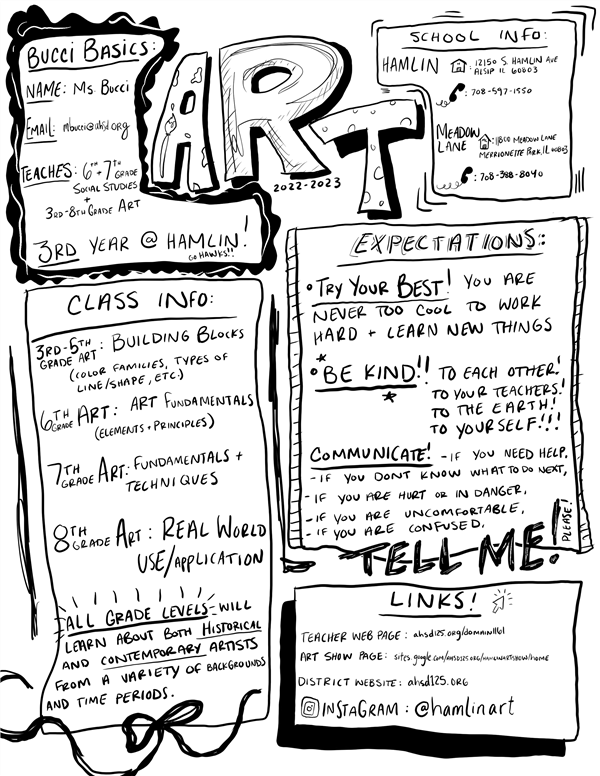 BUCCI BASICS:
NAME: MS. BUCCI
EMAIL: mbucci@ahsd.org
TEACHES: 6TH + 7TH GRADE
SOCIAL STUDIES
+
3RD-8TH GRADE ART
3RD YEAR @ HAMLIN!
GO HAWKS!!
ART
2022-2023
SCHOOL INFO:
HAMLIN : 12150 S. HAMLIN AVE
ALSIP IL 60803
: 708-597-1550
MEADOW
LANE : 11800 MEADOW LANE
MERRIONETTE PARK, IL 60803
: 708-388-8040
CLASS INFO:
3RD-5TH GRADE ART: BUILDING BLOCKS
(COLOR FAMILIES, TYPES OF
LINE/SHAPE, ETC.)
6TH GRADE ART: ART FUNDAMENTALS
(ELEMENTS + PRINCIPLES)
7TH GRADE ART: FUNDAMENTALS +
TECHNIQUES
8TH GRADE ART: REAL WORLD
USE/APPLICATION
ALL GRADE LEVELS WILL
LEARN ABOUT BOTH HISTORICAL
AND CONTEMPORARY ARTISTS
FROM A VARIETY OF BACKGROUNDS
AND TIME PERIODS.
EXPECTATIONS:
• TRY YOUR BEST! YOU ARE
NEVER TOO COOL TO WORK
HARD + LEARN NEW THINGS
• BE KIND!! TO EACH OTHER!
TO YOUR TEACHERS!
TO THE EARTH!
TO YOURSELF!!!
COMMUNICATE! - IF YOU NEED HELP,
- IF YOU DONT KNOW WHAT TO DO NEXT,
- IF YOU ARE HURT OR IN DANGER,
- IF YOU ARE UNCOMFORTABLE,
- IF YOU ARE CONFUSED,
TELL ME!
PLEASE!
LINKS!
TEACHER WEB PAGE: ahsd125.org/domain/1161
ART SHOW PAGE: sites.google.com/ahsd125.org/hamlinartshow/home
DISTRICT WEBSITE: ahsd125.org
INSTAGRAM: @hamlinart